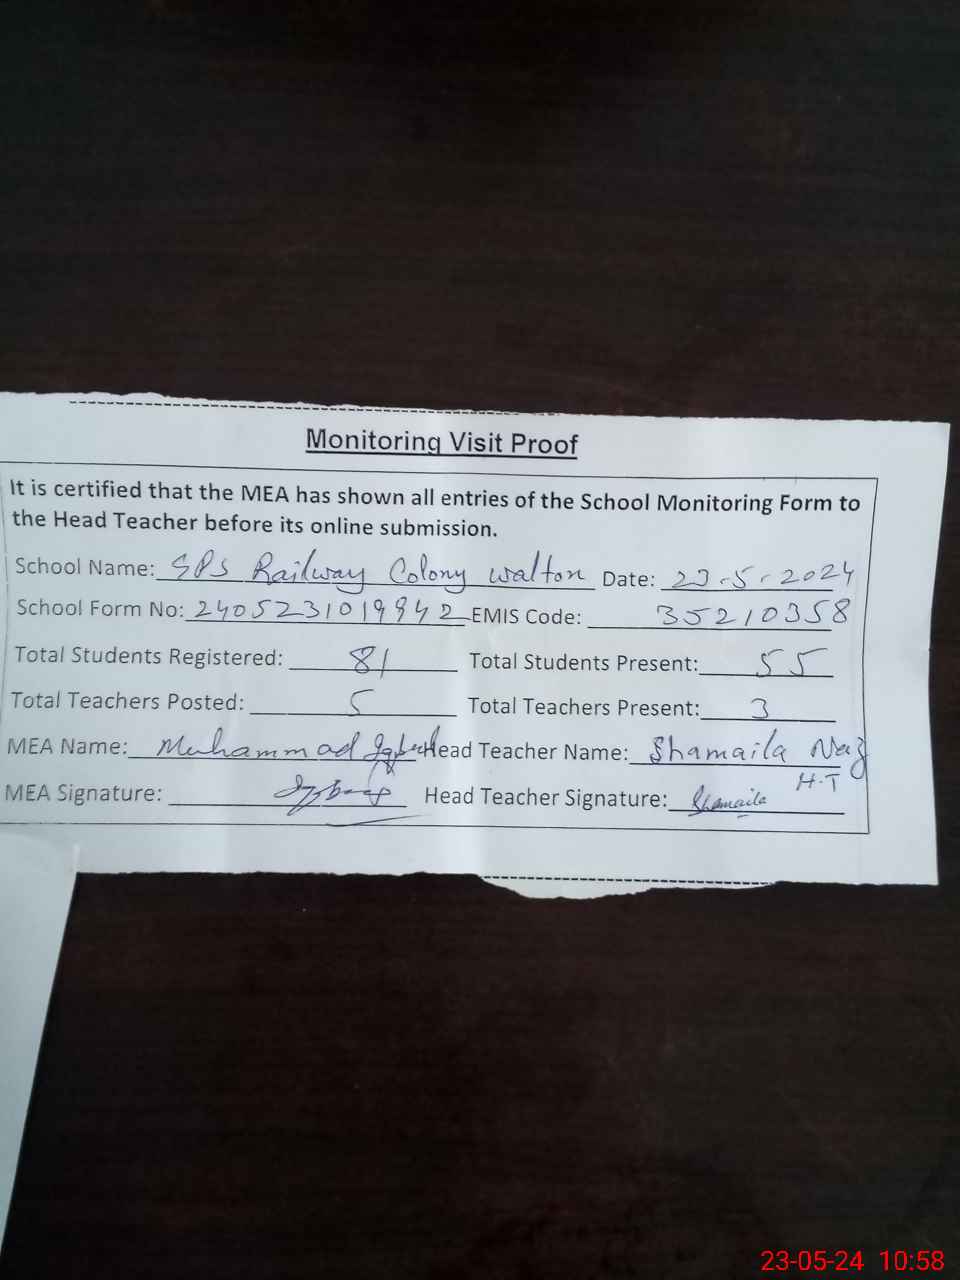 Monitoring Visit Proof
It is certified that the MEA has shown all entries of the School Monitoring Form to
the Head Teacher before its online submission.
School Name: GPS Railway Colony Walton Date: 23-5-2024
School Form No: 2405231019942 EMIS Code: 35210358
Total Students Registered: 81 Total Students Present: 55
Total Teachers Posted: 5 Total Teachers Present: 3
MEA Name: Muhammad Iqbal Head Teacher Name: Shamaila Naz
H.T
MEA Signature: Head Teacher Signature: Shamaila
23-05-24 10:58